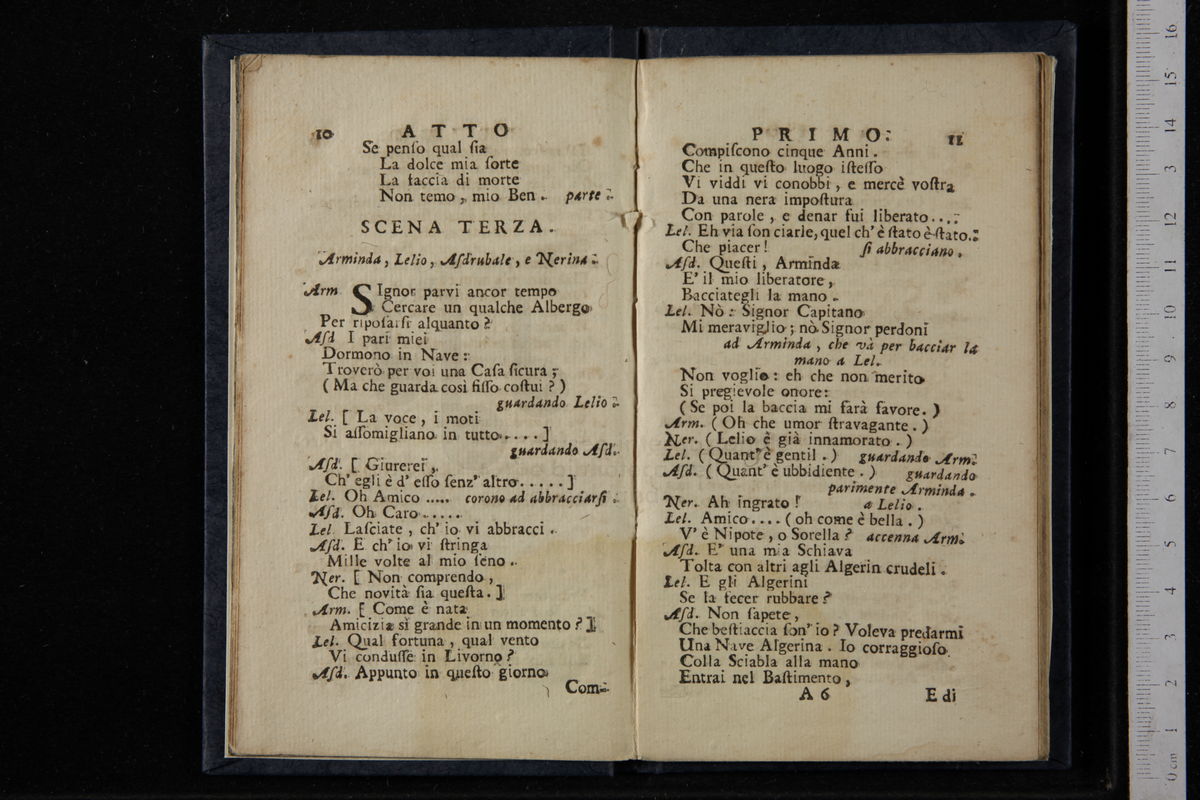 10 ATTO
Se penſo qual ſia
La dolce mia ſorte
La faccia di morte
Non temo, mio Ben. parte.
SCENA TERZA.
Arminda, Lelio, Aſdrubale, e Nerina.
Arm SIgnor parvi ancor tempo
Cercare un qualche Albergo
Per ripoſarſi alquanto?
Aſd I pari miei
Dormono in Nave:
Troverò per voi una Caſa ſicura;
(Ma che guarda così fiſſo coſtui?)
guardando Lelio.
Lel. [ La voce, i moti
Si aſſomigliano in tutto.....]
guardando Aſd.
Aſd. [ Giurerei,
Ch' egli è d' eſſo ſenz' altro.....]
Lel. Oh Amico ..... corono ad abbracciarſi.
Aſd. Oh Caro......
Lel Laſciate, ch' io vi abbracci.
Aſd. E ch' io vi ſtringa
Mille volte al mio ſeno.
Ner. [ Non comprendo,
Che novità ſia queſta.]
Arm. [ Come è nata
Amicizia sì grande in un momento?]
Lel. Qual fortuna, qual vento
Vi conduſſe in Livorno?
Aſd. Appunto in queſto giorno
Com-
PRIMO. 11
Compiſcono cinque Anni.
Che in queſto luogo iſteſſo
Vi viddi vi conobbi, e mercè voſtra
Da una nera impoſtura
Con parole, e denar fui liberato....
Lel. Eh via ſon ciarle, quel ch' è ſtato è ſtato.
Che piacer! ſi abbracciano.
Aſd. Queſti, Arminda
E' il mio liberatore,
Bacciategli la mano.
Lel. Nò: Signor Capitano
Mi meraviglio; nò Signor perdoni
ad Arminda, che và per bacciar la
mano a Lel.
Non voglio: eh che non merito
Si pregievole onore:
(Se poi la baccia mi farà favore.)
Arm. (Oh che umor ſtravagante.)
Ner. (Lelio è già innamorato.)
Lel. (Quant' è gentil.) guardando Arm.
Aſd. (Quant' è ubbidiente.) guardando
parimente Arminda.
Ner. Ah ingrato! a Lelio.
Lel. Amico.... (oh come è bella.)
V' è Nipote, o Sorella? accenna Arm.
Aſd. E' una mia Schiava
Tolta con altri agli Algerin crudeli.
Lel. E gli Algerini
Se la fecer rubbare?
Aſd. Non ſapete,
Che beſtiaccia ſon' io? Voleva predarmi
Una Nave Algerina. Io corraggioſo
Colla Sciabla alla mano
Entrai nel Baſtimento,
A 6 E di
0 cm 1 2 3 4 5 6 7 8 9 10 11 12 13 14 15 16